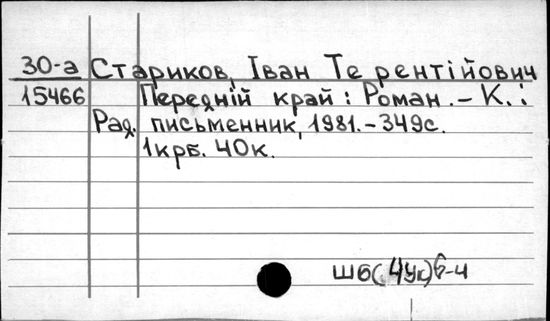 30-а Стариков, Іван Терентійович
15466 Передній край: Роман. - К.:
Рад. письменник, 1981. - 349с.
1крб. 40к.
Ш6(4Ук)6-4